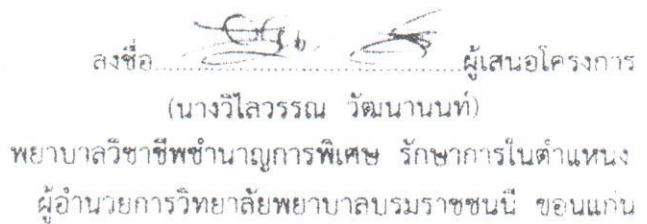 ลงชื่อ..............................ผู้เสนอโครงการ
(นางวิไลวรรณ วัฒนานนท์)
พยาบาลวิชาชีพชำนาญการพิเศษ รักษาการในตำแหน่ง
ผู้อำนวยการวิทยาลัยพยาบาลบรมราชชนนี ขอนแก่น